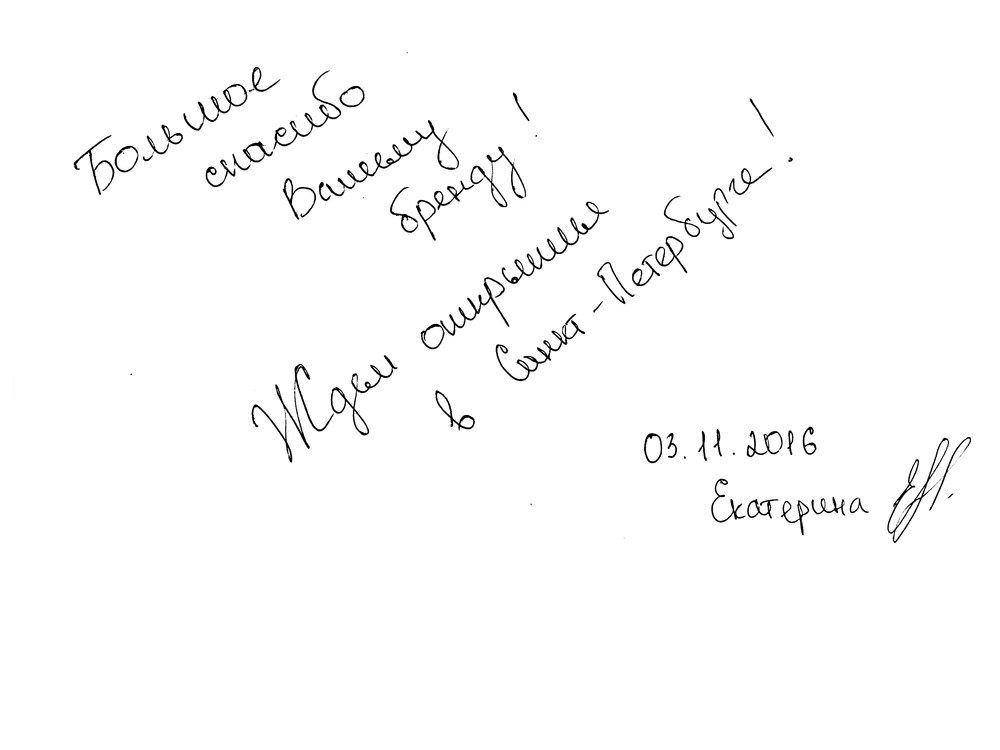 Большое
спасибо
Вашему
бренду!
Ждем открытие
в Санкт-Петербурге!
03.11.2016
Екатерина